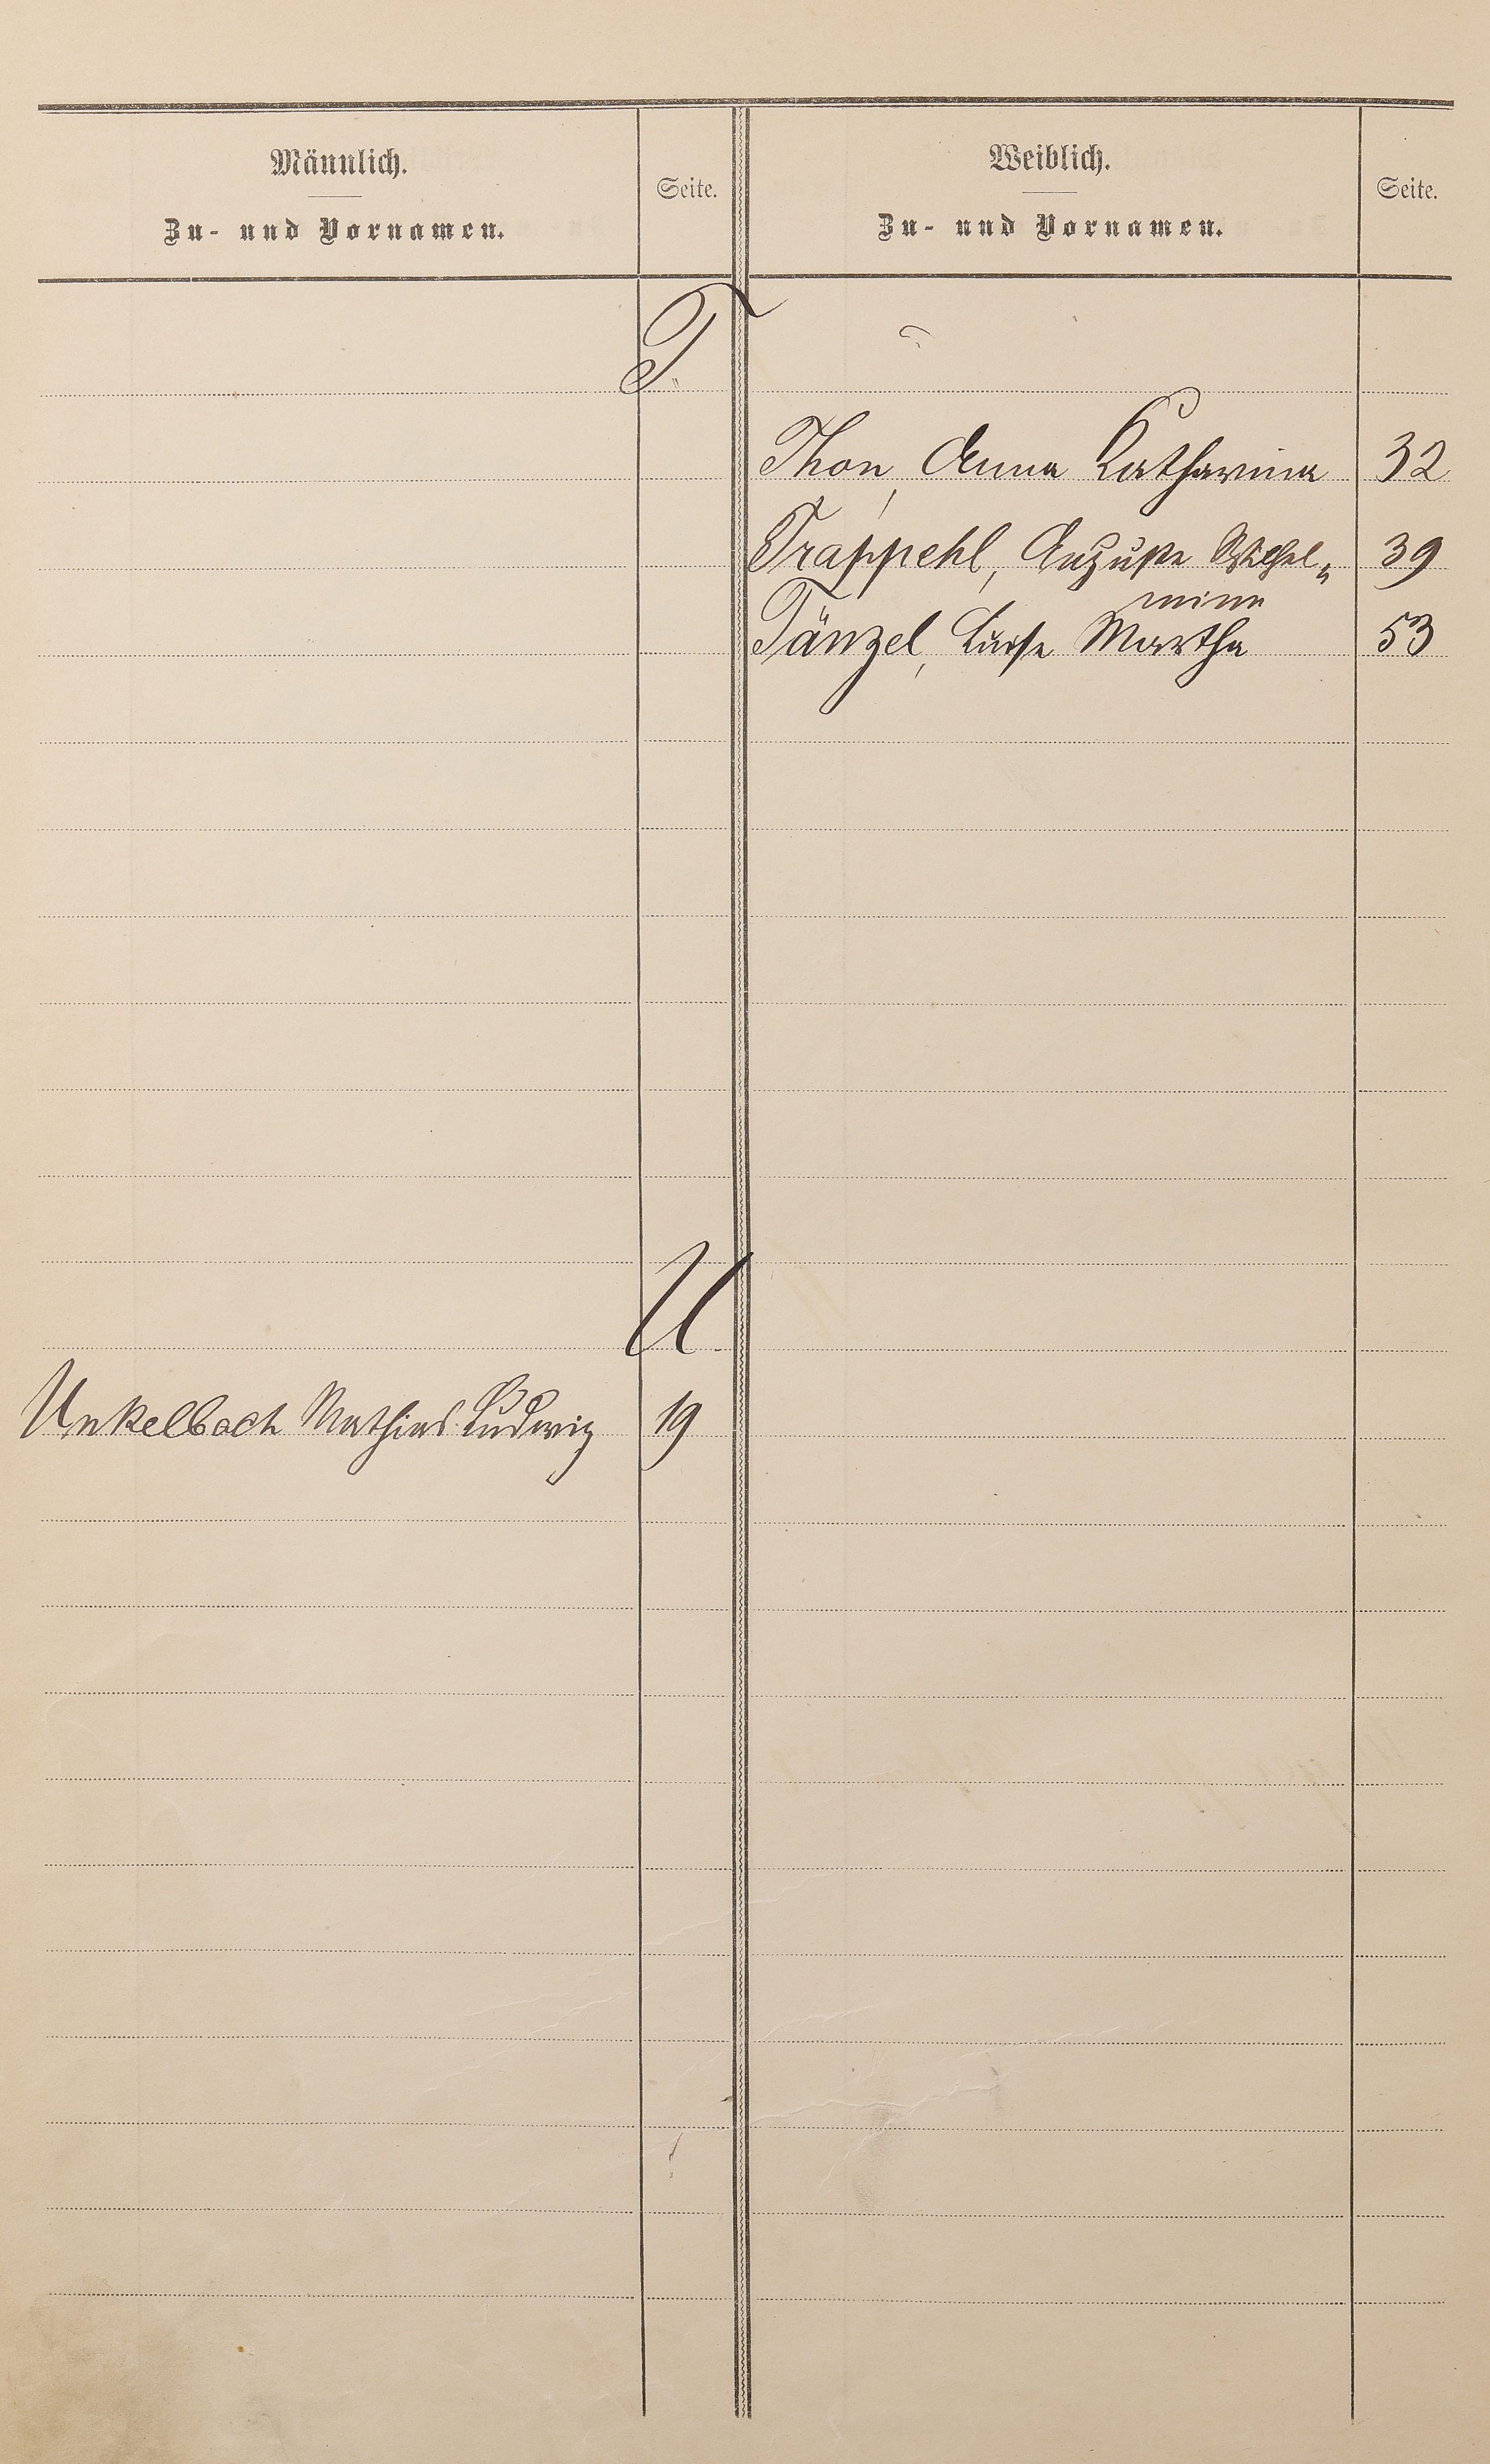 Männlich.
Zu- und Vornamen.
Seite.
Weiblich.
Zu- und Vornamen.
Seite.
T.
Thon, Anna Katharina 32
Trappehl, Auguste Wilhel- 39
mine
Tänzel, Luise Martha 53
U.
Unkelbach Mathias Ludwig 19